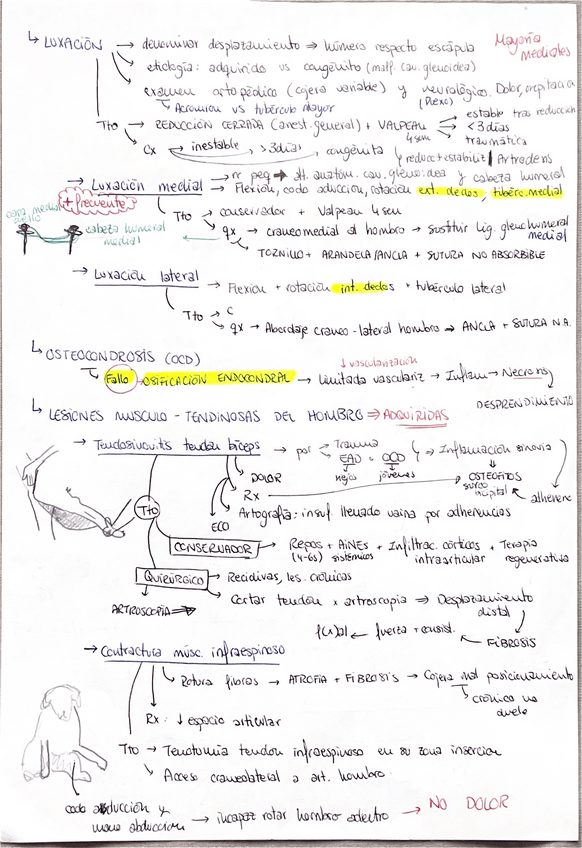 ↳ LUXACIÓN → denominar desplazamiento ⇒ húmero respecto escápula
Mayoría mediales
→ etiología: adquirida vs congénita (malf. cav. glenoidea)
→ examen ortopédico (cojera variable) y neurológico. Dolor, crepitación
(Plexo)
↳ Acromion vs tubérculo mayor
Tto → REDUCCIÓN CERRADA (anest. general) + VALPEAU
4 sem
estable tras reducción
< 3 días
traumática
↳ Cx → inestable → >3días → congénita
reduce+estabiliz | Artrodesis
→ Luxación medial → rr peq → alt. anatóm. cav. glenoidea y cabeza humeral
→ Flexión, codo aducción, rotación ext. dedos, tubérc. medial
+ frecuente
Tto → conservador + Valpeau 4 sem
↳ qx → craneomedial al hombro → sustituir lig. gleuhumeral medial
cabeza humeral medial
↳ TORNILLO + ARANDELA/ANCLA + SUTURA NO ABSORBIBLE
→ Luxación lateral → Flexión + rotación int. dedos + tubérculo lateral
Tto → C
↳ qx → Abordaje craneo-lateral hombro → ANCLA + SUTURA N.A.
↳ OSTEOCONDROSIS (OCD)
↓ vascularización
↳ Fallo OSIFICACIÓN ENDOCONDRAL → Limitada vasculariz → Inflam → Necrosis
DESPRENDIMIENTO
↳ LESIONES MUSCULO-TENDINOSAS DEL HOMBRO ⇒ ADQUIRIDAS
→ Tendosinovitis tendón bíceps → por
Trauma
EAD o OCD → Inflamación sinovia
viejos jóvenes
DOLOR
OSTEOFITOS
surco bicipital
adherenc
Rx
ECO
Artografía: insuf. llenado vaina por adherencias
Tto
CONSERVADOR → Reposo + AINES + Infiltrac. córticos + Terapia
(4-6s) sistémicos intraarticular regenerativa
QUIRÚRGICO → Recidivas, les. crónicas
↳ Cortar tendón x artroscopia ⇒ Desplazamiento distal
ARTROSCOPIA
f(x)al ← fuerza + consist. ← FIBROSIS
→ Contractura músc. infraespinoso
↳ Rotura fibras → ATROFIA + FIBROSIS → Cojera mal posicionamiento
↳ crónico no duele
Rx: ↓ espacio articular
Tto → Tenotomía tendón infraespinoso en su zona inserción
↳ Acceso craneolateral a art. hombro
codo abducción y
mano abducción → incapaz rotar hombro adentro → NO DOLOR